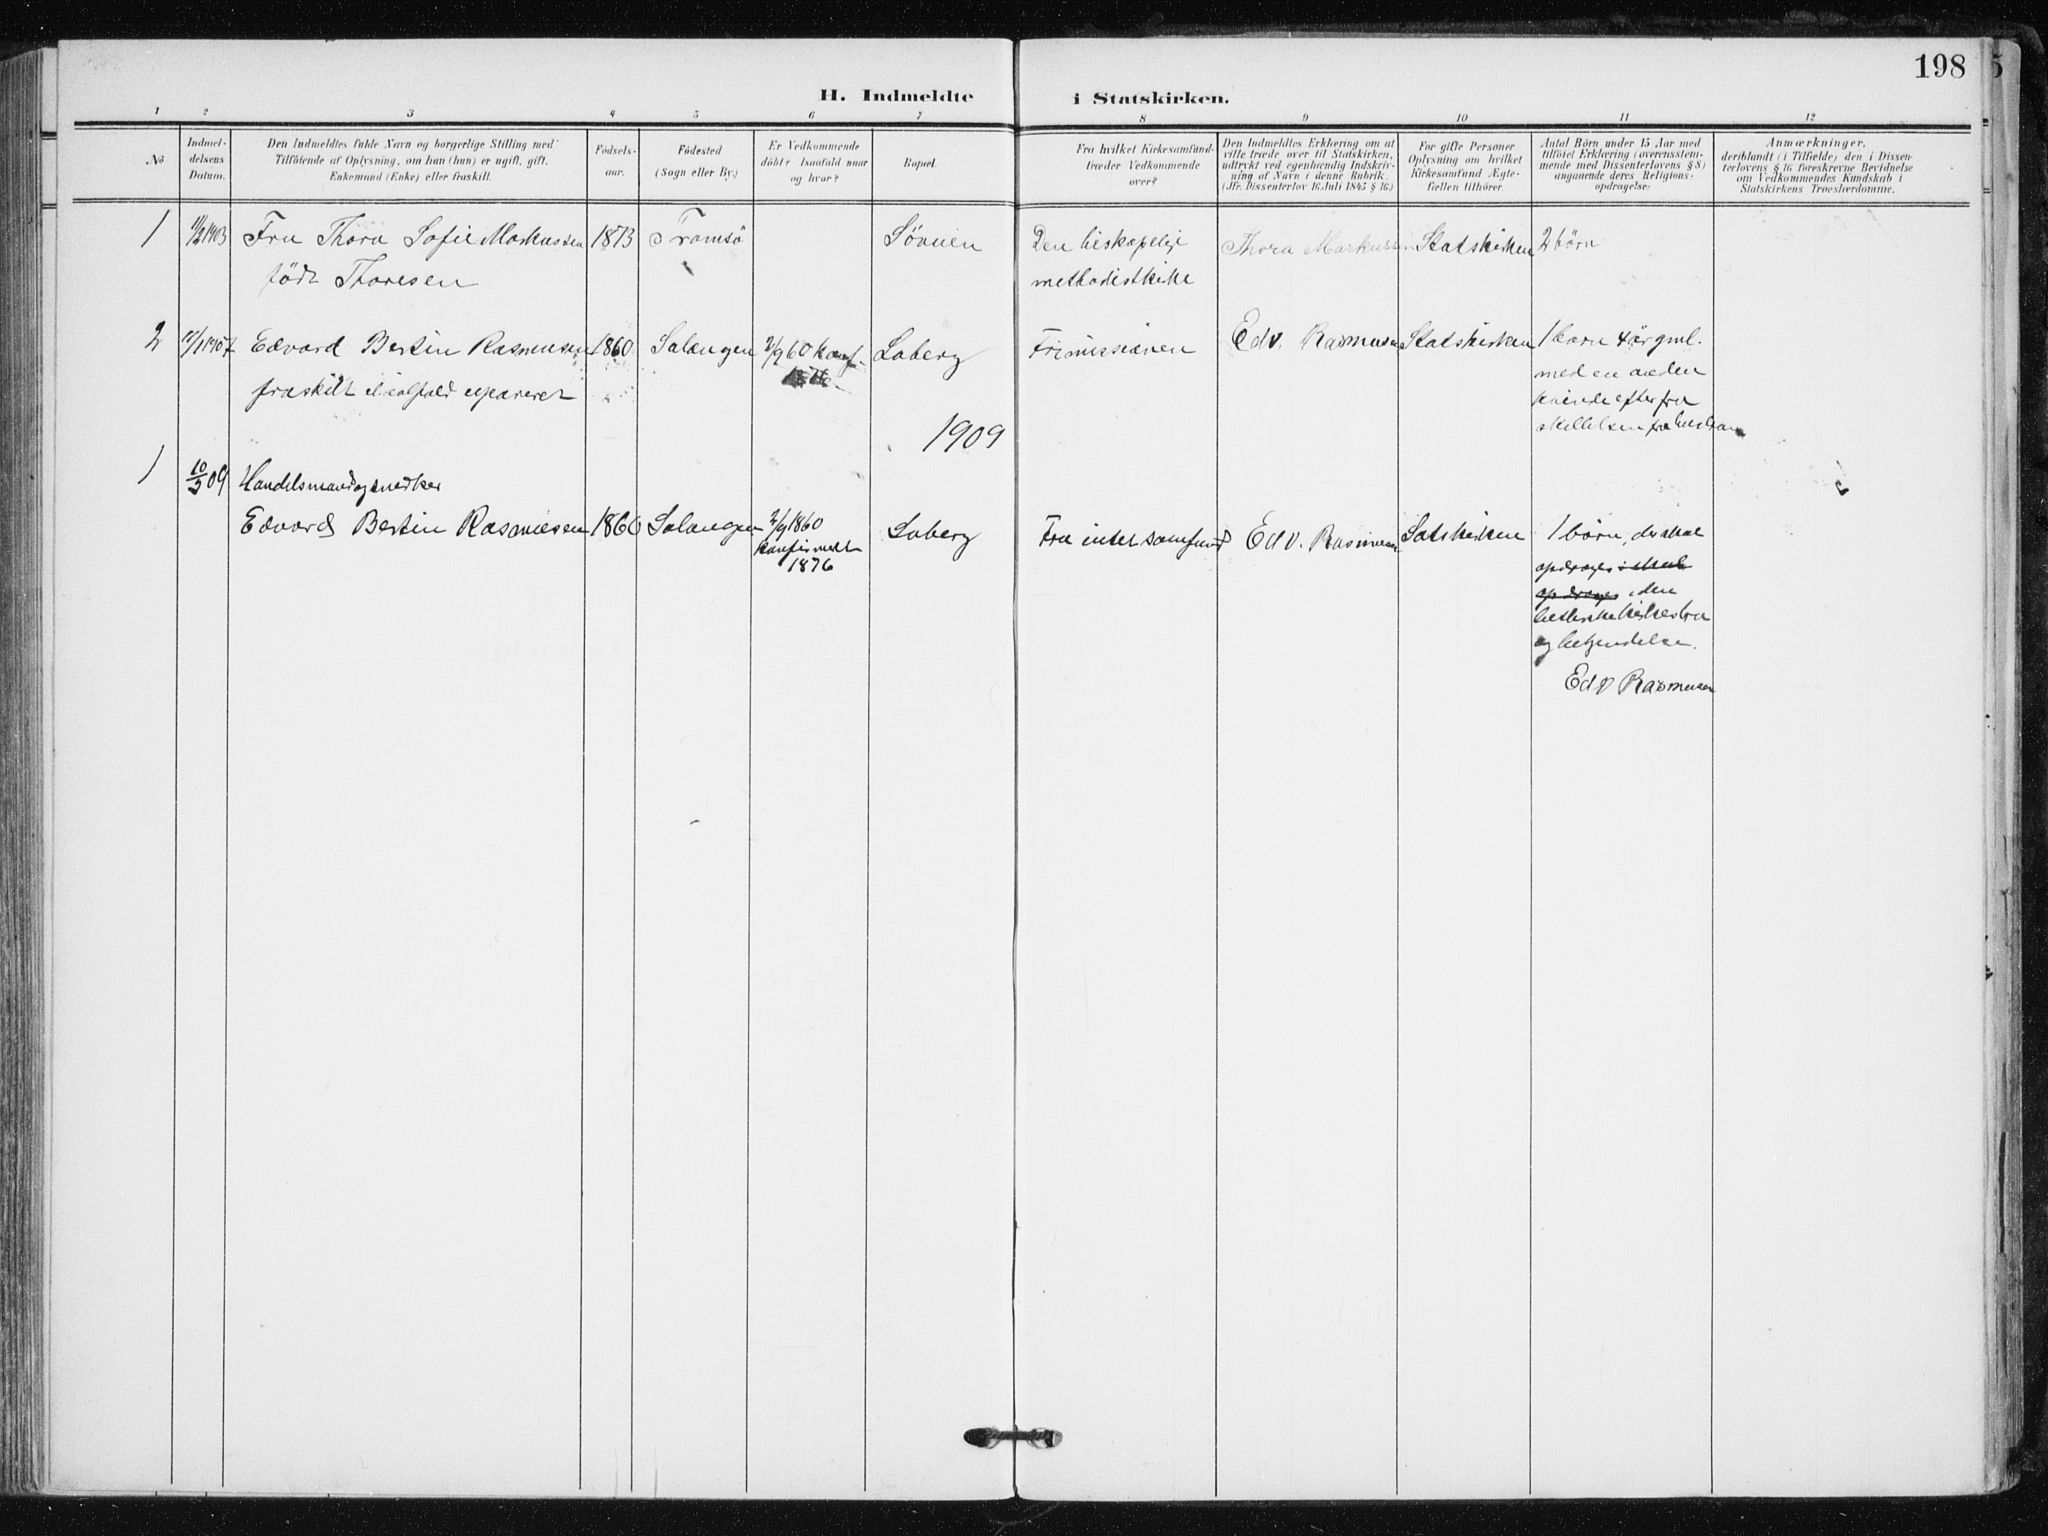 198
H. Indmeldte i Statskirken.
1 2 3 4 5 6 7 8 9 10 11 12
No
Indmel-
delsens
Datum.
Den Indmeldtes fulde Navn og borgerlige Stilling med
Tilföiende af Oplysning, om han (hun) er ugift, gift,
Enkemand (Enke) eller fraskilt.
Födsels-
aar.
Födested
(Sogn eller By.)
Er Vedkommende
döbt? Isaafald naar
og hvor?
Bopæl.
Fra hvilket Kirkesamfund
træder Vedkommende
over?
Den Indmeldtes Erklæring om at
ville træde over til Statskirken,
udtrykt ved egenhændig Indskriv-
ning af Navn i denne Rubrik.
(Jfr. Dissenterlov 16 Juli 1845 § 16.)
For gifte Personer
Oplysning om hvilket
Kirkesamfund Ægte-
fællen tilhörer.
Antal Börn under 15 Aar med
tilföiet Erklæring (overensstem-
mende med Dissenterlovens § 8)
angaaende deres Religions-
opdragelse:
Anmærkninger,
deriblandt (i Tilfælde) den i Dissen-
terlovens § 16 foreskrevne Bevidnelse
om Vedkommendes Kundskab i
Statskirkens Troeslærdomme.
1 1903 Fru Thora Sofie Markussen 1873 Tromsö Sövnien Den biskopelige Thora Markussen Statskirken 2 börn
född Thoresen methodistkirke
2 1907 Edvard Bertin Rasmusen 1860 Salangen 2/9 60 konf. Loberg Frimissionen Edv. Rasmusen Statskirken 1 barn 4 år gml.
fraskilt med en anden
kvinde efter fra
skillelsen fra hustruen
1909
1 10/3 09 Handelsmand og snedker
Edvard Bertin Rasmussen 1860 Salangen 2/9 1860 Loberg Fra intet samfund Edv. Rasmusen Statskirken 1 börn, der skal
konfirmert opdrages i skal
1876 opdrages i den
lutherske kirkes tro
og bekjendelse.
Edv Rasmusen